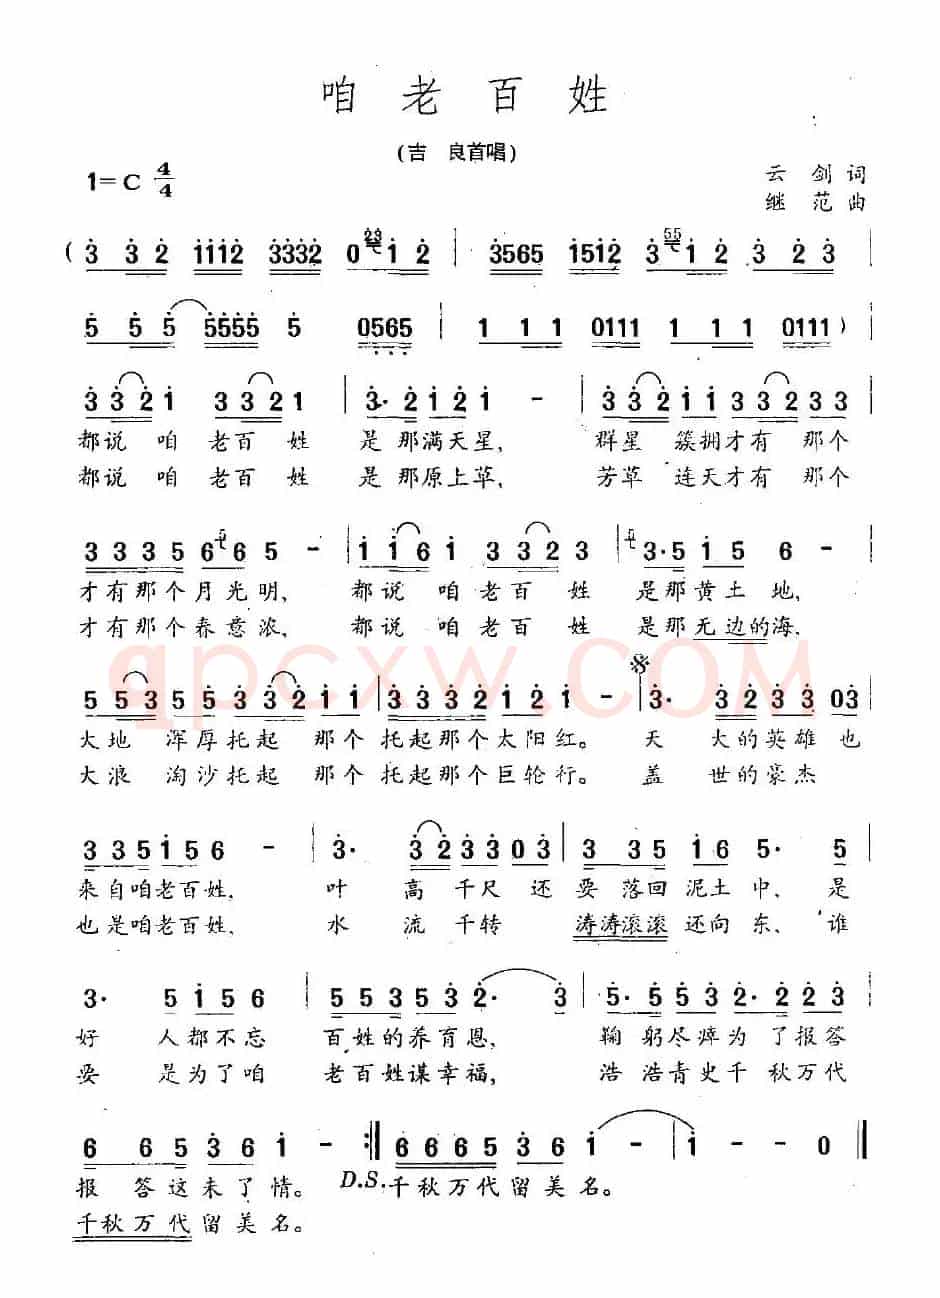 咱老百姓
(吉 良首唱)
1=C 4/4
云 剑 词
继 范 曲
( 3 32 1112 3332 0 23 12 | 3565 1512 3 55 12 3 23 |
5 55 5555 5 0565 | 1 11 0111 1 11 0111 ) |
3321 3321 | 3·212 1 - | 3321 1 332 33 |
都说 咱 老百 姓 是 那满天星, 群星 簇拥才有 那个
都说 咱 老百 姓 是 那原上草, 芳草 连天才有 那个
3335 6665 - | 1161 3323 | 3·5 15 6 - |
才有那个月光明, 都说 咱老百 姓 是那黄土地,
才有那个春意浓, 都说 咱老百 姓 是那无边的海,
553 5533211 | 3333 121 - 3· 3233 03 |
大地 浑厚托起 那个 托起那个太阳红。 天 大的英雄 也
大浪 淘沙托起 那个 托起那个巨轮行。 盖 世的豪杰
335156 - | 3· 3233 03 | 3 35 16 5· 5 |
来自咱老百姓, 叶 高 千尺 还 要 落回 泥土 中, 是
也是咱老百姓, 水 流 千转 涛涛滚滚 还向 东, 谁
3· 5156 | 553532· 3 | 5· 5532· 223 |
好 人都不忘 百姓的养育恩, 鞠 躬尽瘁为 了报答
要 是为了咱 老百姓谋幸福, 浩 浩青史千 秋万代
6 65361 - :|| 6665361 - | 1 - - 0 ||
报 答这未了情。 D.S. 千秋万代留美名。
千秋万代留美名。
qpcxw.COM